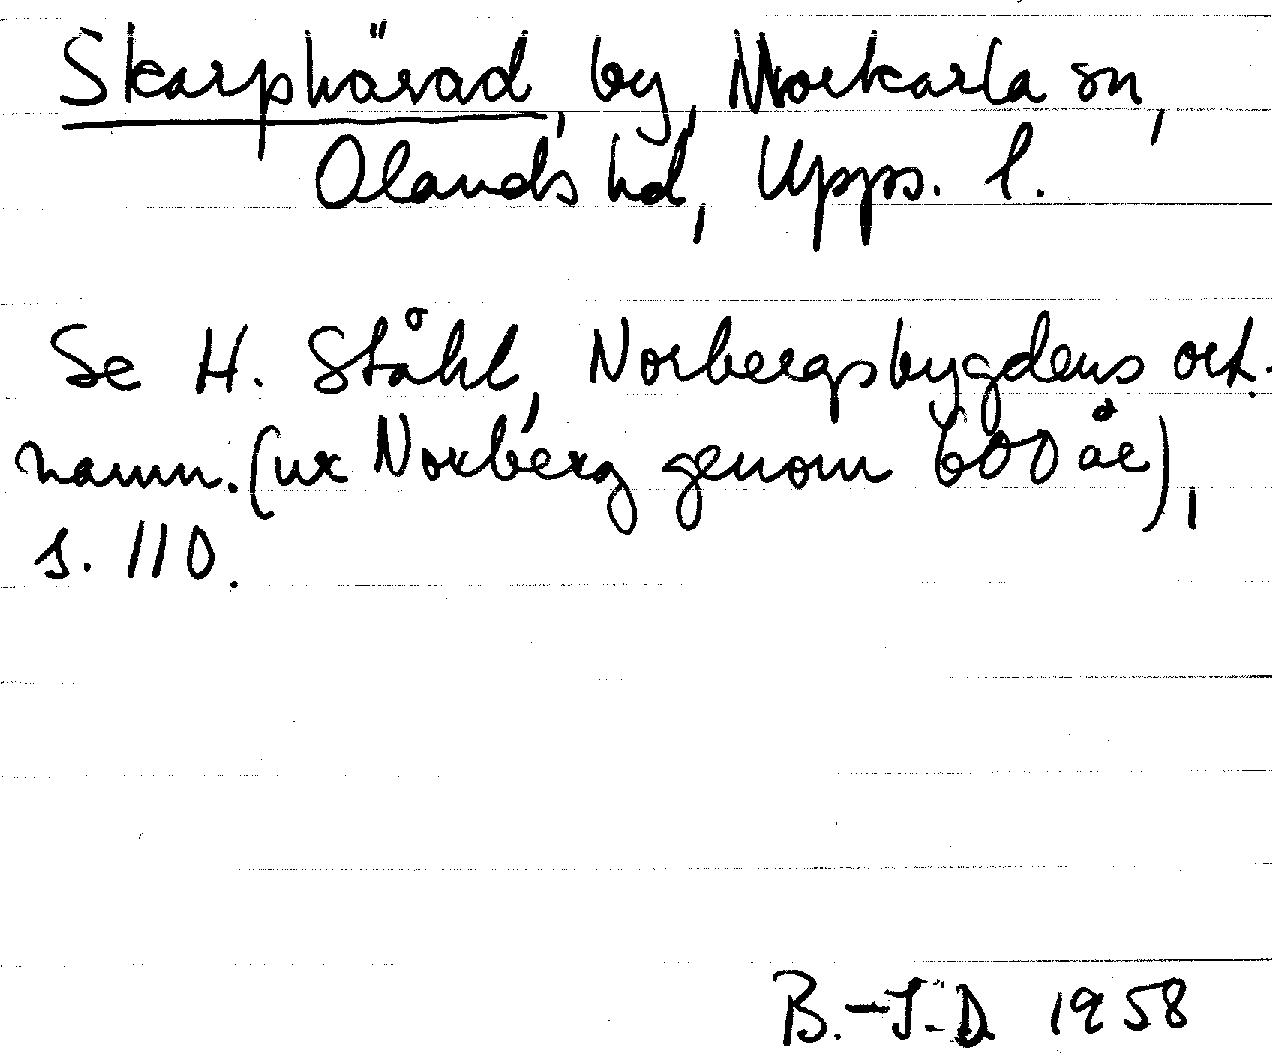 Skarphärad, by, Morkarla sn,
Olands hd, Upps. l.
Se H. Ståhl, Norbergsbygdens ort-
namn. (ur Norberg genom 600 år),
s. 110.
B.-J.D. 1958